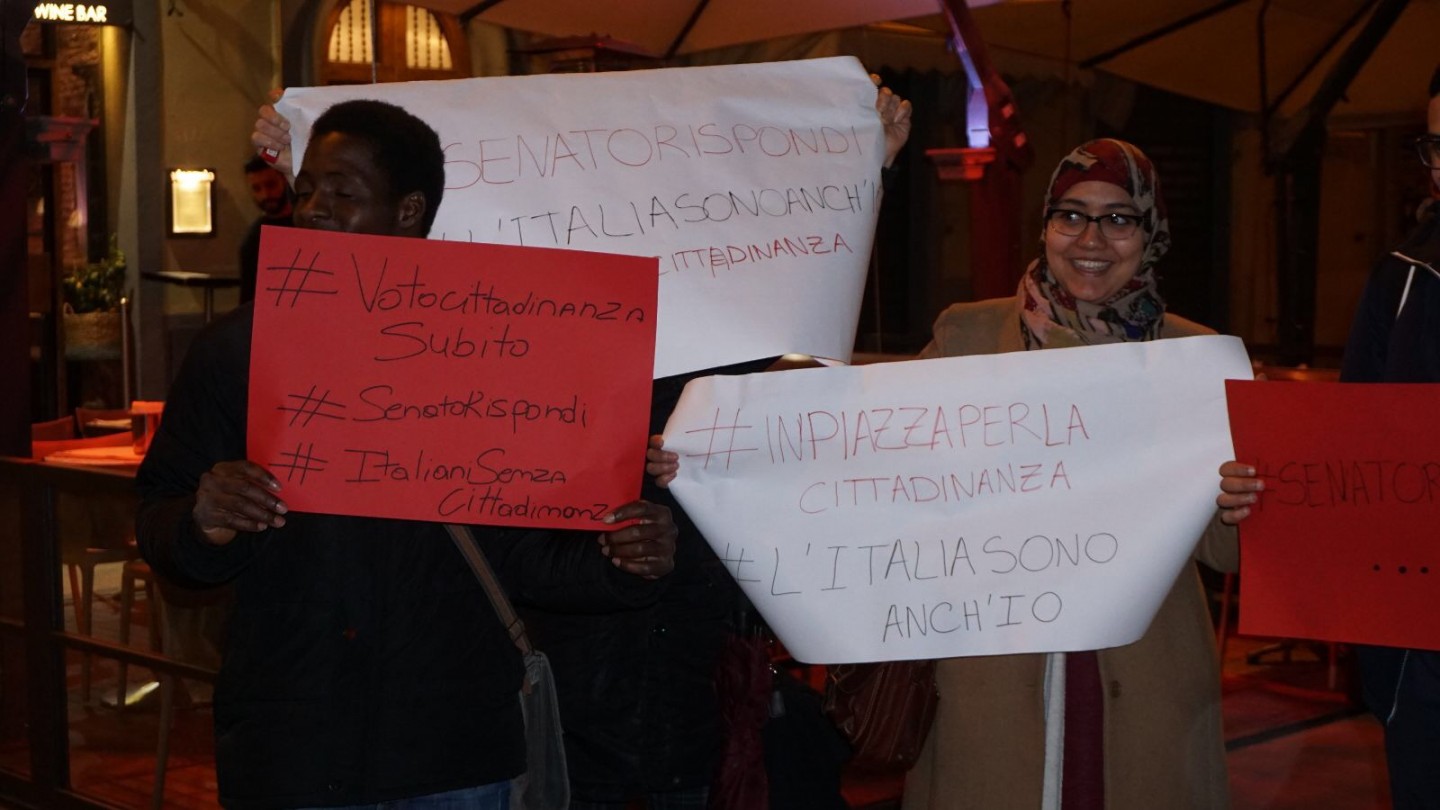 WINE BAR
#SENATORISPONDI
L'ITALIASONOANCH'I
CITTADINANZA
#Votocittadinanza
Subito
#SenatoRispondi
#ItalianiSenza
Cittadinanz
#INPIAZZAPERLA
CITTADINANZA
#L'ITALIASONO
ANCH'IO
#SENATOR
....